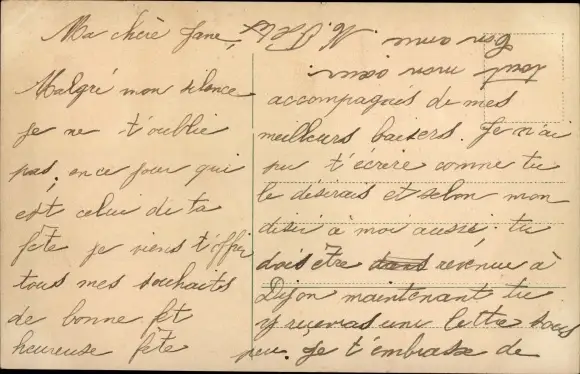 Ma chère Jane,
Malgré mon silence
je ne t'oublie
pas, en ce jour qui
est celui de ta
fête je viens t'offrir
tous mes souhaits
de bonne fêt
heureuse fête
accompagnés de mes
meilleurs baisers. Je n'ai
pu t'écrire comme tu
le désirais et selon mon
désir à moi aussi. tu
dois être dans revenue à
Dijon maintenant tu
y recevras une lettre sous
peu. Je t'embrasse de
tout mon cœur
Ton amie